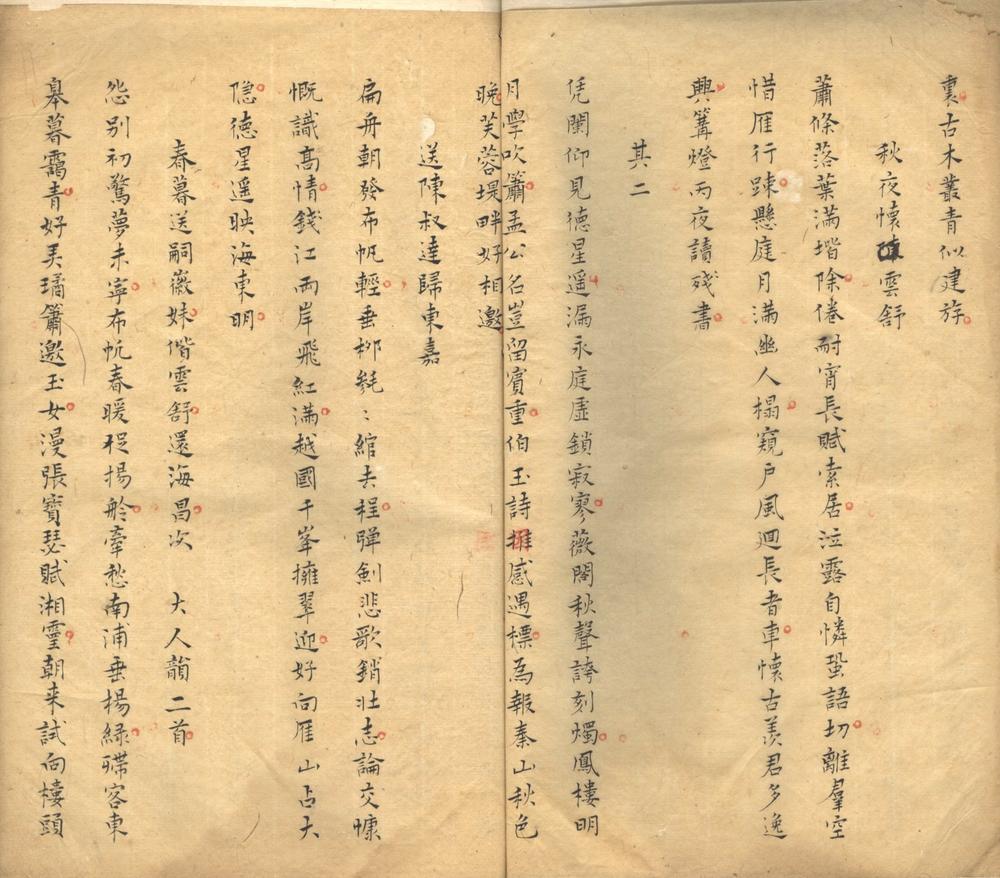 裏古木叢青似建斿
秋夜懷雲舒
蕭條落葉滿堦除倦耐宵長賦索居泣露自憐蛩語切離羣空
惜雁行踈懸庭月滿幽人榻窺戶風迴長者車懷古羨君多逸
興篝燈丙夜讀殘書
其二
凭闌仰見德星遥漏永庭虛鎖寂寥薇閣秋聲誇刻燭鳳樓明
月學吹簫孟公名豈留賓重伯玉詩推感遇標為報秦山秋色
晚芙蓉堤畔好相邀
送陳叔達歸東嘉
扁舟朝發布帆輕垂栁毿〻綰去程彈劍悲歌銷壯志論交慷
慨識高情錢江兩岸飛紅滿越國千峯擁翠迎好向雁山占大
隱德星遥映海東明
春暮送嗣薇妹偕雲舒還海昌次 大人韻二首
怨别初驚夢未寧布帆春暖捉揚舲牽愁南浦垂楊綠殢客東
皋暮靄青好美璚簫邀玉女漫張寶瑟賦湘靈朝来試向樓頭